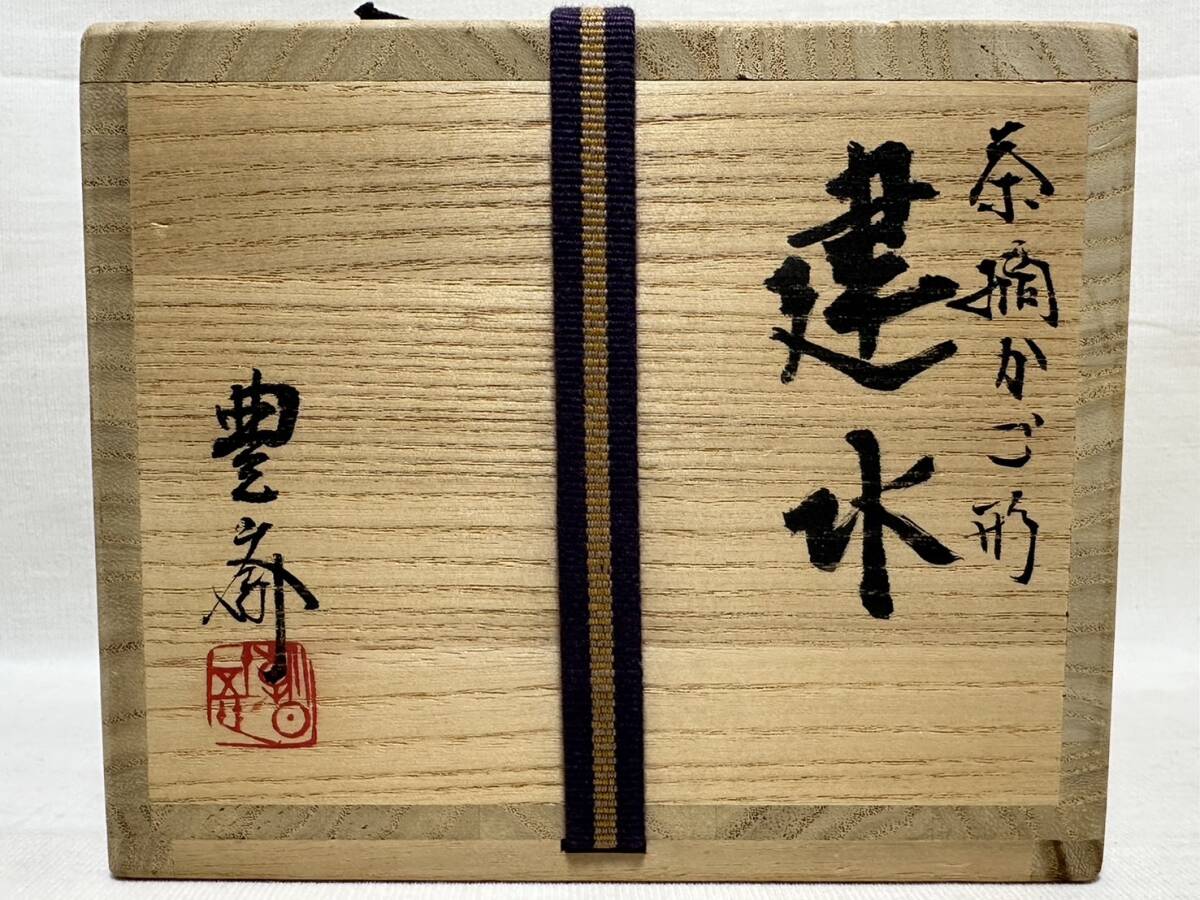 茶摘かご形
建水
豊斎